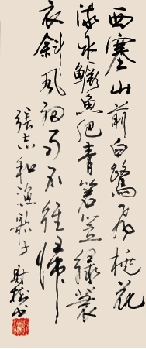 西塞山前白鷺飛桃花
流水鱖魚肥青箬笠綠蓑
衣斜風細雨不須歸
張志和漁歌子